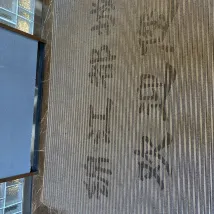 锦江都城
欢迎您